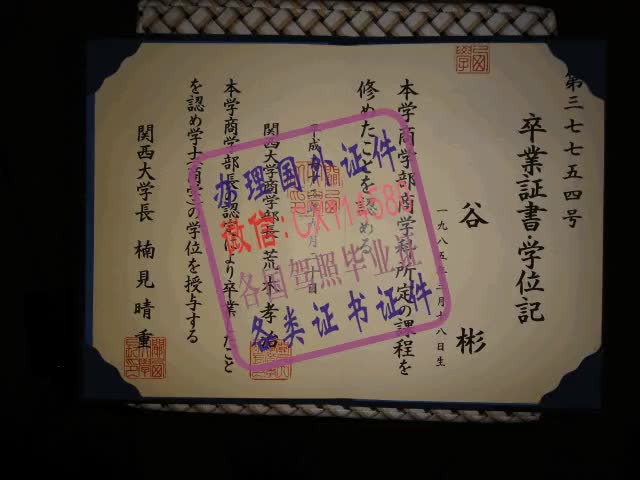 第三七七五四号
卒業証書・学位記
谷 彬
一九八五年 月十八日生
本学商学部商学科所定の課程を
修めたことを認める
平成 年九月 十日
関西大学商学部長 荒木孝治
本学商学部長の認定により卒業 たこと
を認め学士(商学)の学位を授与する
関西大学長 楠見晴重
办理国外证件
微信:CX114580
各国驾照毕业证
各类证书证件